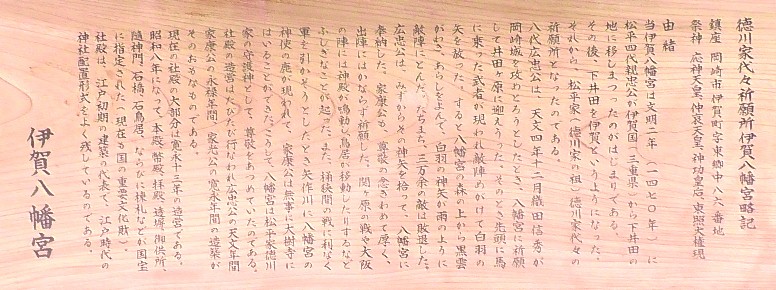 徳川家代々祈願所伊賀八幡宮略記
鎮座 岡崎市伊賀町字東郷中八六番地
祭神 応神天皇、仲哀天皇、神功皇后、東照大権現
由緒
当伊賀八幡宮は文明二年(一四七〇年)に
松平四代親忠公が伊賀国(三重県)から下井田の
地に移しまつったのがはじまりである。
その後、下井田を伊賀というようになった。
それから、松平家(徳川家の祖)徳川家代々の
祈願所となったのである。
八代広忠公は、天文四年十二月織田信秀が
岡崎城を攻めとろうとしたとき、八幡宮に祈願
して井田ヶ原に迎えうった。そのとき先頭に馬
に乗った武者が現われ敵陣めがけて白羽の
矢を放った。すると八幡宮の森の上から黒雲
がわき、あらしをよんで、白羽の神矢が雨のように
敵陣にとんだ。たちまち、三万余の敵は敗退した。
広忠公は、みずからその神矢を拾って、八幡宮に
奉納した。家康公も、尊敬の念きわめて厚く、
出陣にはかならず祈願した。関ヶ原の戦や大阪
の陣には神殿が鳴動し鳥居が移動したりするなど
ふしぎなことが起った。また、桶狭間の戦に利なく
軍を引かせようとしたとき矢作川に八幡宮の
神使の鹿が現われて、家康公は無事に大樹寺に
はいることができた。こうして、八幡宮は松平家徳川
家の守護神として、尊敬をあつめていたのである。
社殿の造営はたびたび行なわれ広忠公の天文年間
家康公の永禄年間、家光公の寛永年間の造築が
そのおもなものである。
現在の社殿の大部分は寛永十三年の造営である。
昭和八年になって、本殿、幣殿、拝殿、透塀、御供所、
随神門、石橋、石鳥居、ならびに棟札などが国宝
に指定された(現在も国の重要文化財)。
社殿は、江戸初期の建築の代表で、江戸時代の
神社配置形式をよく残しているのである。
伊賀八幡宮